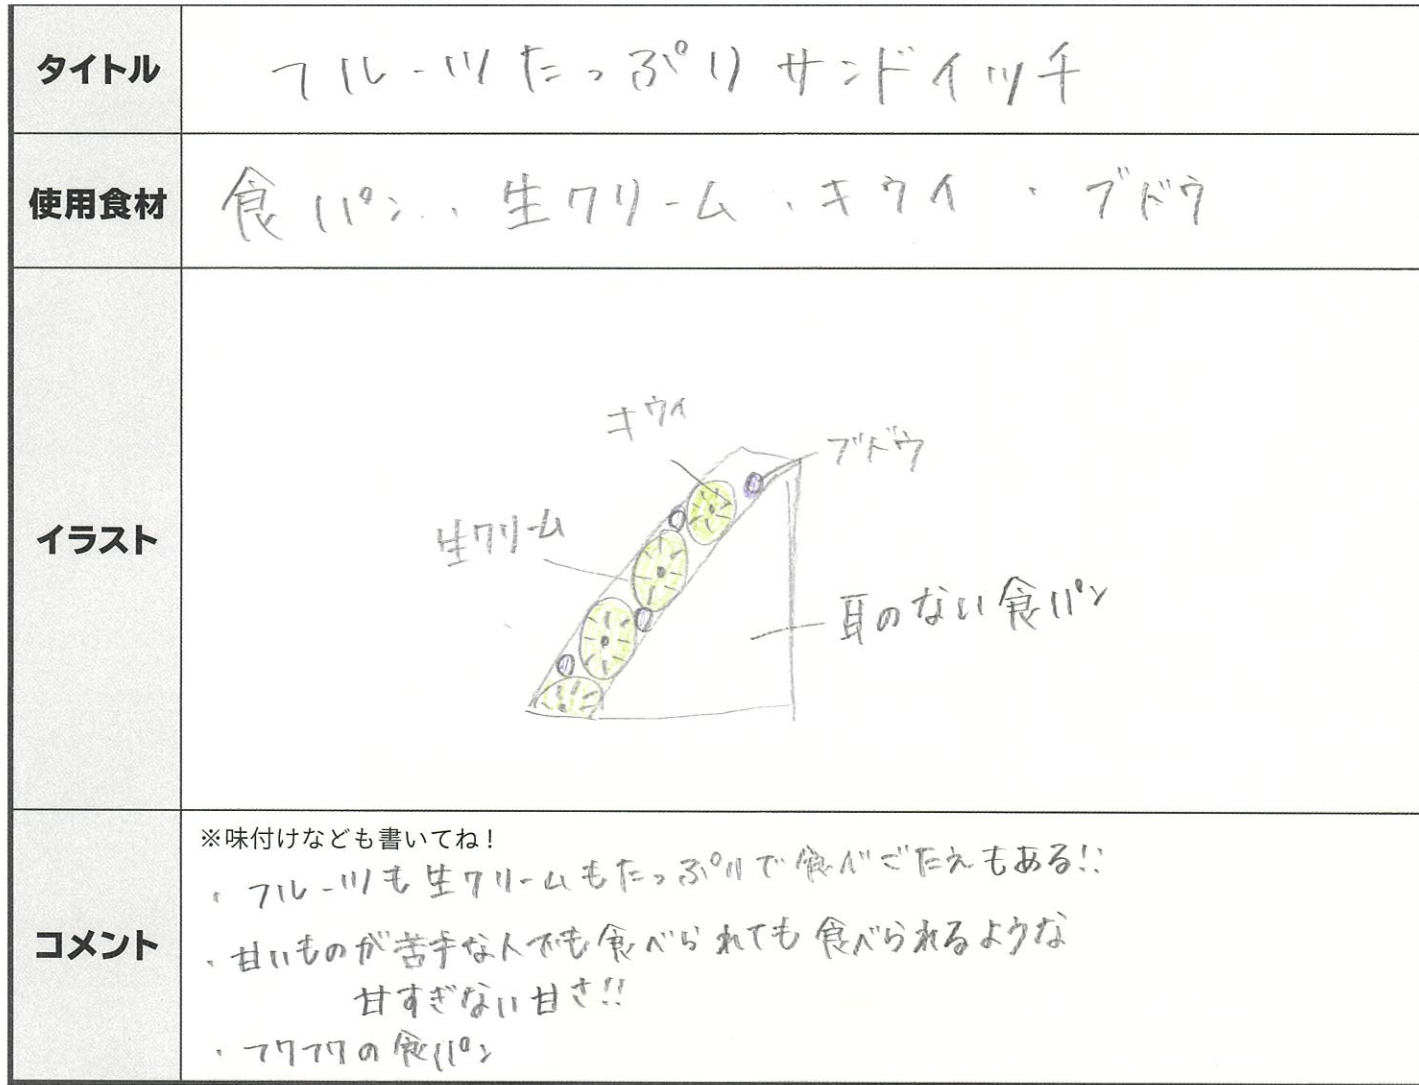 タイトル
フルーツたっぷりサンドイッチ
使用食材
食パン・生クリーム・キウイ・ブドウ
イラスト
キウイ
ブドウ
生クリーム
耳のない食パン
コメント
※味付けなども書いてね!
・フルーツも生クリームもたっぷりで食べごたえもある!!
・甘いものが苦手な人でも食べられても食べられるような
甘すぎない甘さ!!
・フワフワの食パン